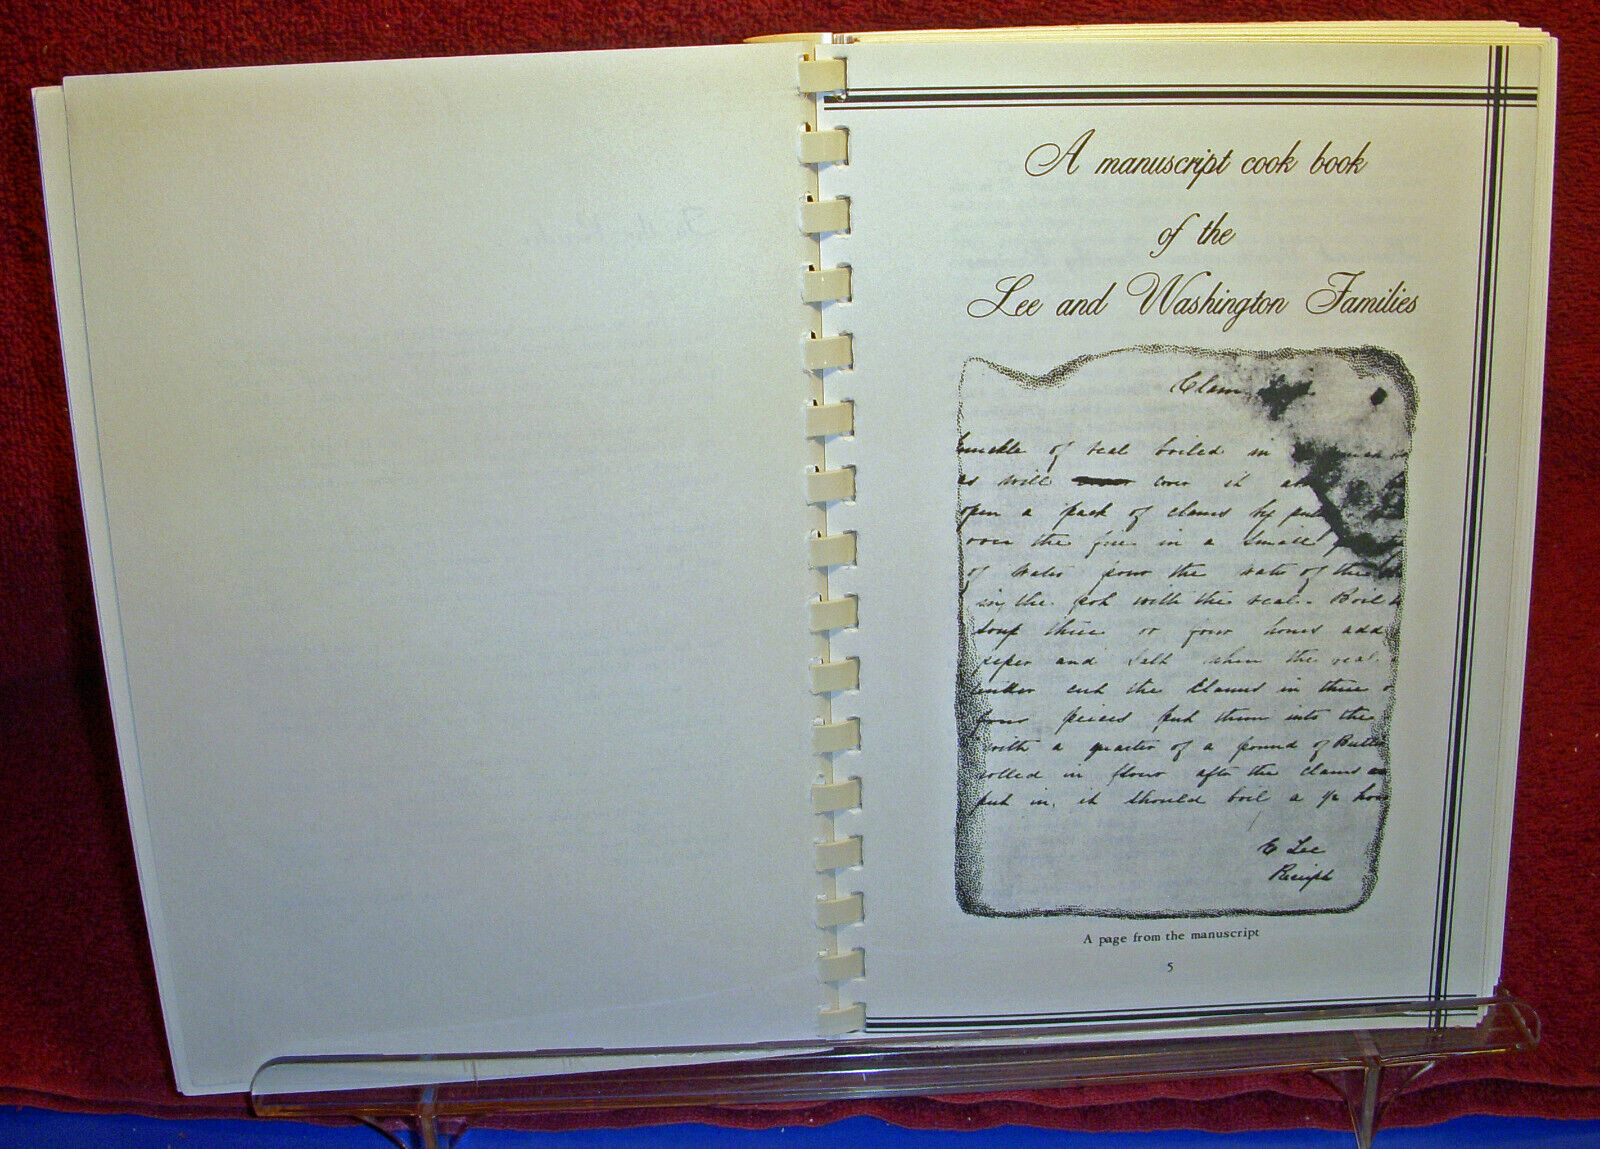 A manuscript cook book
of the
Lee and Washington Families
Clam
knuckle of veal boiled in
as will cover it
open a peck of clams by
over the fire in a small
of water pour the water of the
in the pot with the veal. Boil
soup three or four hours add
peper and salt when the veal
cut the clams in three
four peices put them into the
with a quarter of a pound of Butter
rolled in flour after the clams
put in, it should boil a ½ hour
E Lee
Receipt
A page from the manuscript
5